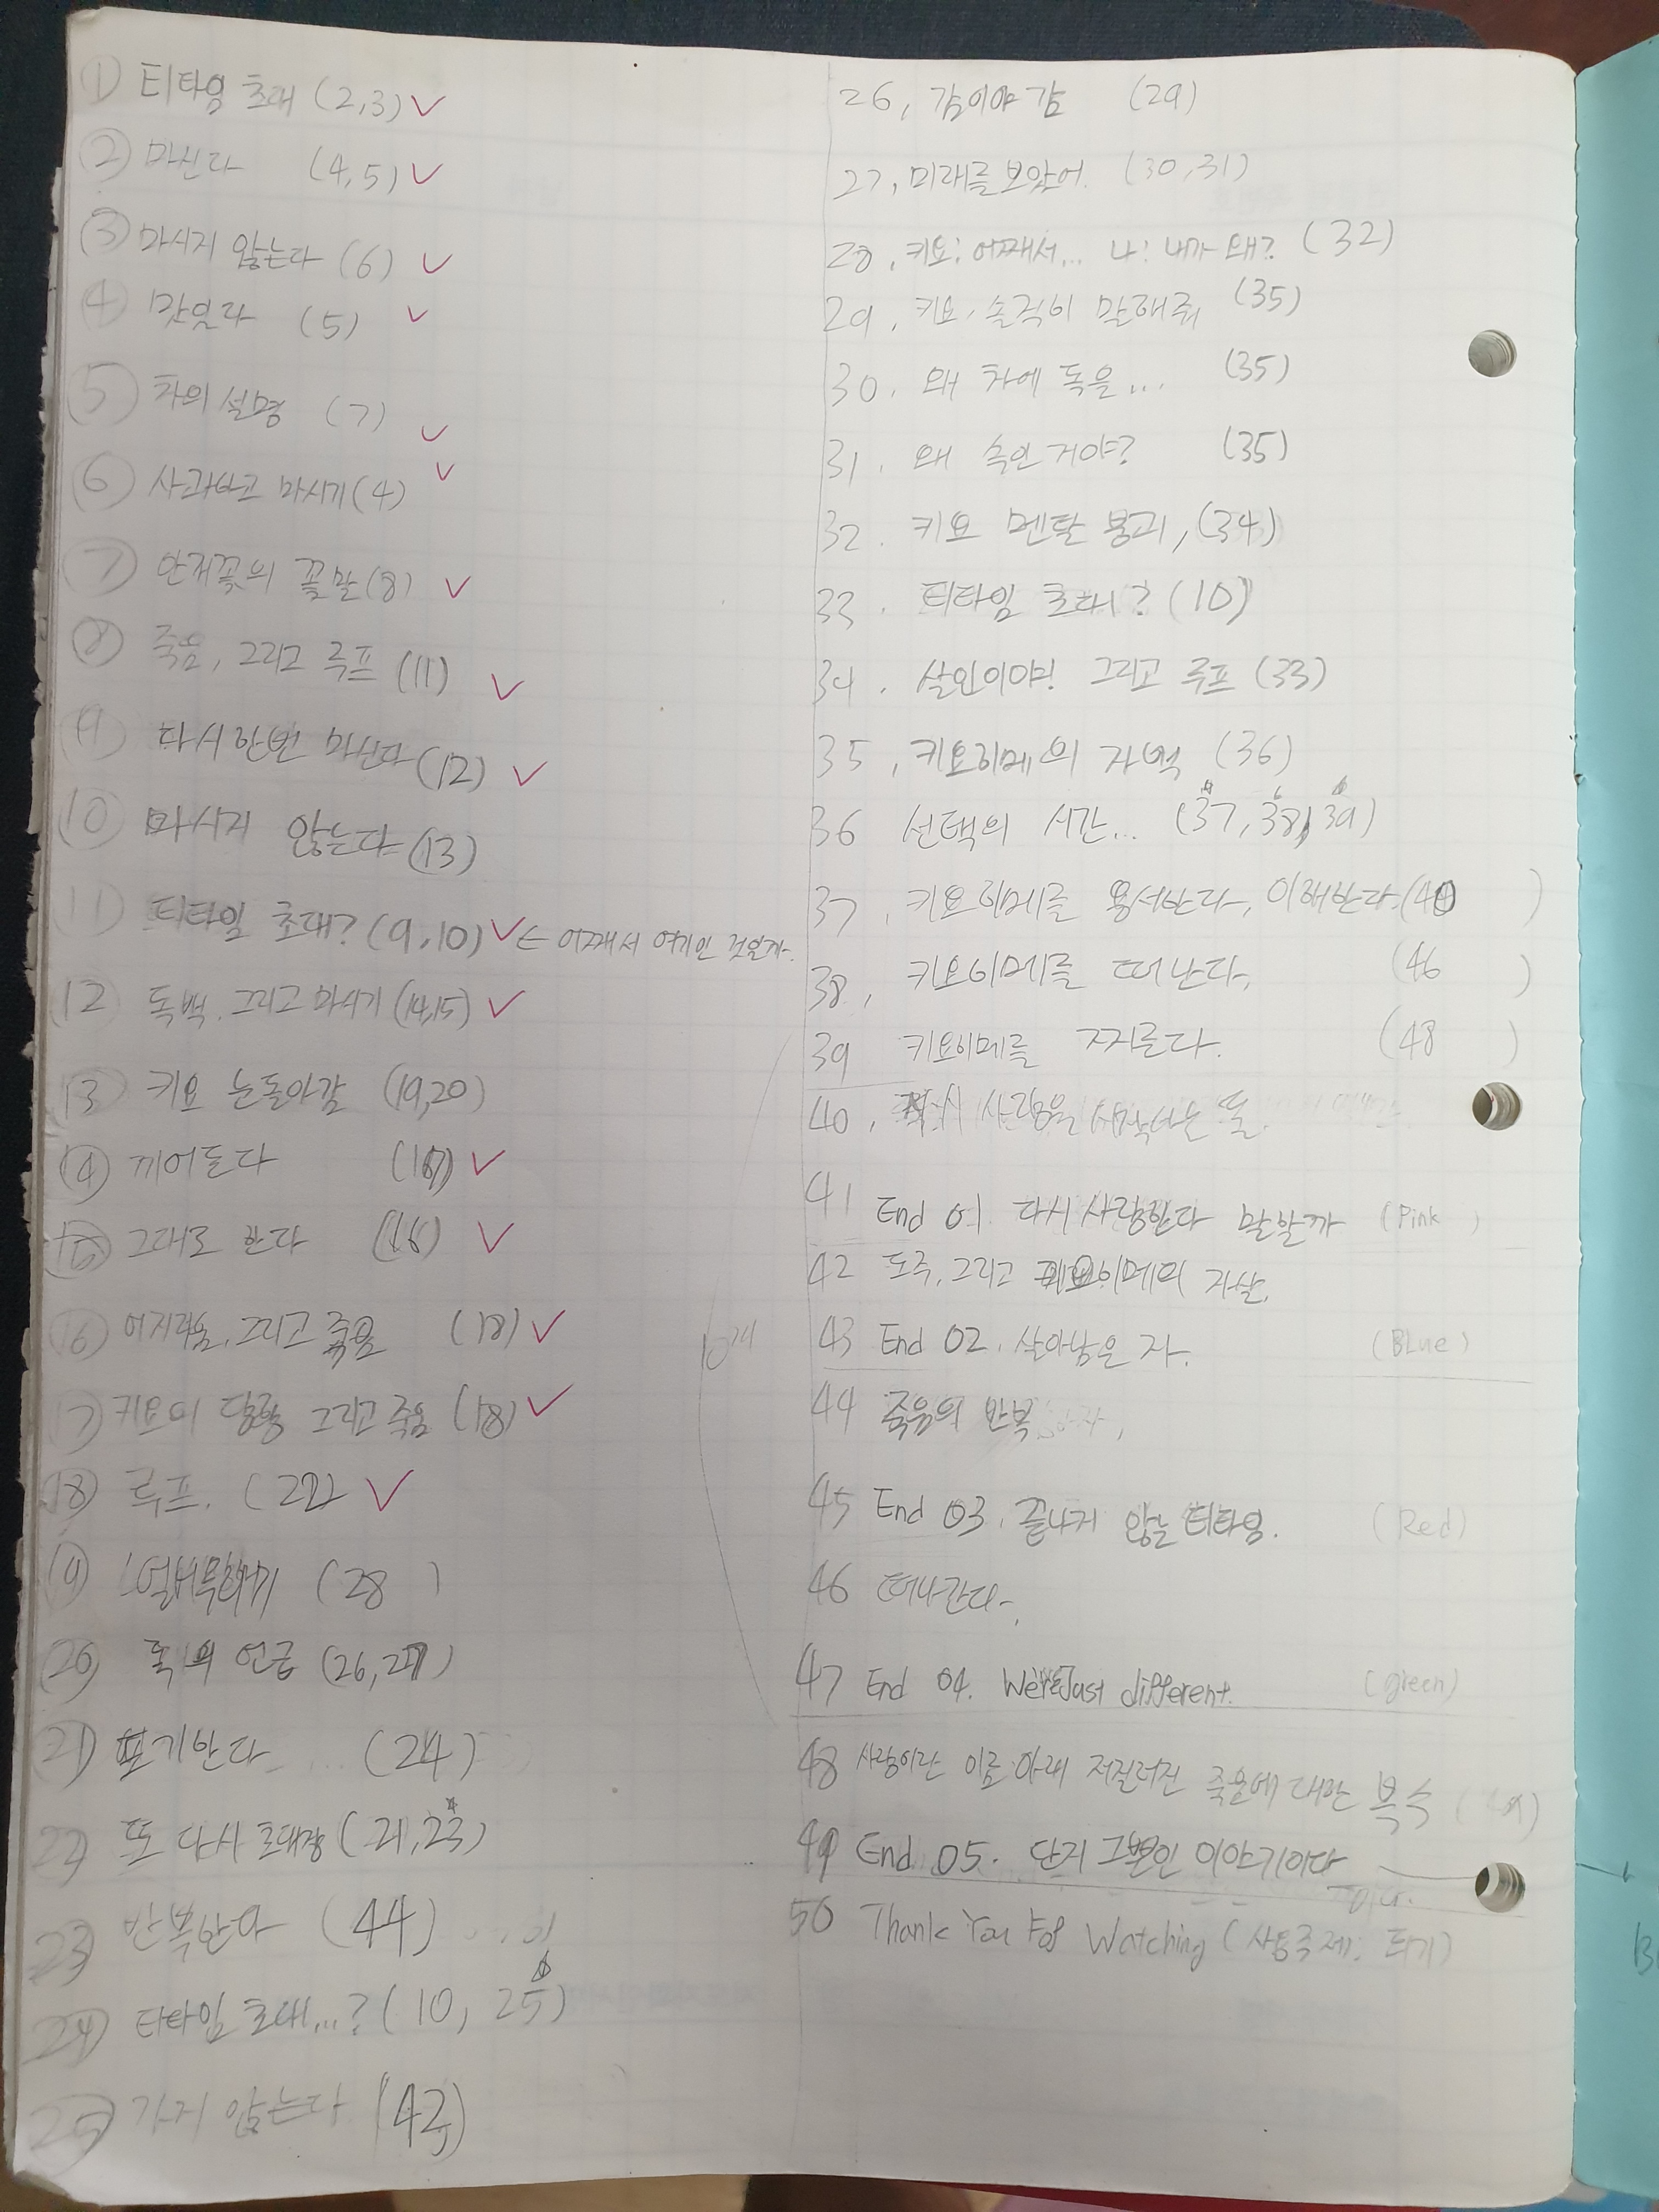 ① 티타임 초대 (2,3) ✓
② 마신다 (4,5) ✓
③ 마시지 않는다 (6) ✓
④ 맛있다 (5) ✓
⑤ 차의 설명 (7) ✓
⑥ 사과하고 마시기 (4) ✓
⑦ 안개꽃의 꽃말 (8) ✓
⑧ 죽음, 그리고 루프 (11) ✓
⑨ 다시 한번 마신다 (12) ✓
⑩ 마시지 않는다 (13)
⑪ 티타임 초대? (9,10) ✓ ← 어째서 여기인 것일까.
⑫ 독백, 그리고 마시기 (14,15) ✓
⑬ 키요 눈돌아감 (19,20)
⑭ 끼어든다 (17) ✓
⑮ 그대로 한다 (16) ✓
⑯ 어지러움, 그리고 죽음 (18) ✓
⑰ 키요의 당황 그리고 죽음 (18) ✓
⑱ 루프. (22) ✓
⑲ 얼버무리기 (28)
⑳ 독의 언급 (26,27)
21 포기한다 (24)
22 또 다시 초대장 (21,23)
23 반복한다 (44)
24 티타임 초대...? (10, 25)
25 가지 않는다 (42)
26, 감이야 감 (29)
27, 미래를 보았어. (30,31)
28, 키요: 어째서... 나: 내가 왜? (32)
29, 키요, 솔직히 말해줘 (35)
30. 왜 차에 독을... (35)
31. 왜 속인거야? (35)
32. 키요 멘탈 붕괴, (34)
33. 티타임 초대? (10)
34. 살인이야! 그리고 루프 (33)
35, 키요히메의 자백 (36)
36 선택의 시간... (37,38,39)
37, 키요히메를 용서한다, 이해한다. (40)
38, 키요히메를 떠난다. (46)
39 키요히메를 찌른다. (48)
40, 사랑을 시작하는 둘.
41 End 01 다시 사랑한다 말할까 (Pink)
42 도주, 그리고 키요히메의 자살.
10개
43 End 02. 살아남은 자. (BLue)
44 죽음의 반복
45 End 03. 끝나지 않는 티타임. (Red)
46 떠나간다.
47 End 04. We're Just different. (green)
48 사랑이란 이름 아래 저질러진 죽음에 대한 복수 (49)
49 End 05. 단지 그뿐인 이야기이다
50 Thank You For Watching